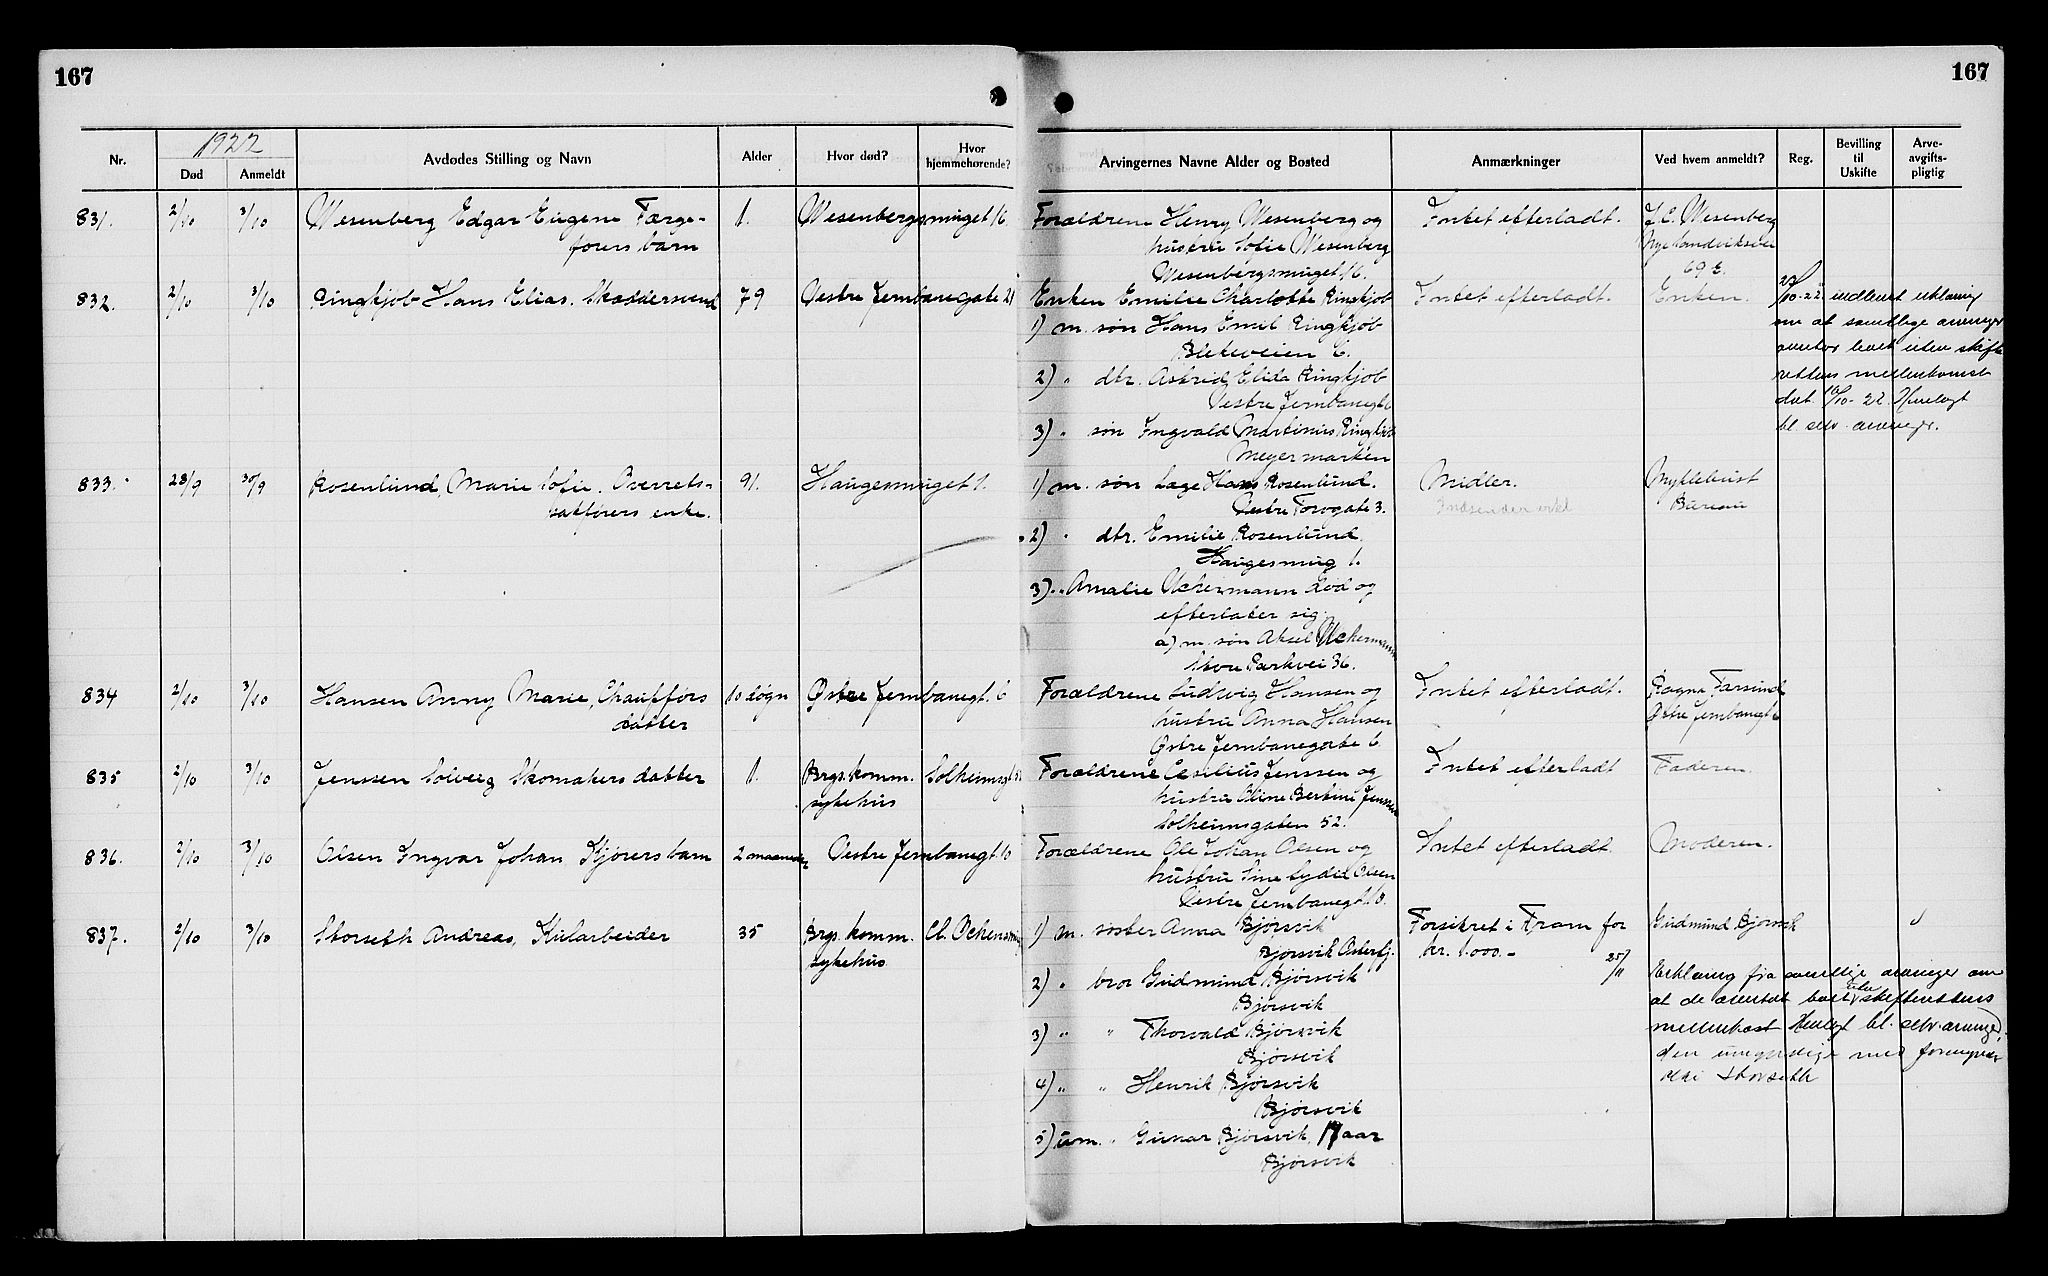 167
167
1922
Nr.
Død
Anmeldt
Avdødes Stilling og Navn
Alder
Hvor død?
Hvor hjemmehørende?
Arvingernes Navne Alder og Bosted
Anmærkninger
Ved hvem anmeldt?
Reg.
Bevilling til Uskifte
Arve-avgifts-pligtig
831. 2/10 3/10 Wesenberg Edgar Eugene Færge- 1. Wesenbergsmuget 16.
førers barn
Forældrene Henry Wesenberg og Intet efterladt. J. E. Wesenberg
hustru Sofie Wesenberg Nye Sandviksvei
Wesenbergsmuget 16. 69 E.
832. 2/10 3/10 Ringkjøb Hans Elias. Skræddersvend 79 Vestre Jernbanegate 21
Enken Emilie Charlotte Ringkjøb Intet efterladt. Enken. /10-22 indlevert erklæring
1) m. søn Hans Emil Ringkjøb om at samtlige arvinger
Blekeveien 6. overtar boet uten skifte
2) " dtr. Astrid Elida Ringkjøb rettens mellemkomst
Vestre Jernbanegt. dat. /10-22.
3) " søn Ingvald Martinius Ringkjøb bl. selv. arvinger.
Meyermarken
833. 28/9 30/9 Rosenlund, Marie Sofie. Overrets- 91. Haugesmuget 1.
sakførers enke.
1) m. søn Læge Hans Rosenlund. Midler. Myklebust
Østre Torvgate 3. Indsender erkl Bureau
2) " dtr. Emilie Rosenlund.
Haugesmug 1.
3) " Amalie Uchermann død og
efterlater sig.
a) m. søn Aksel Uchermann
Store Parkvei 36.
834 2/10 3/10 Hansen Anny Marie, Chauffførs 10 døgn Østre Jernbanegt. 6
datter
Forældrene Ludvig Hansen og Intet efterladt. Ragna Farsund
hustru Anna Hansen Østre Jernbanegt 6
Østre Jernbanegate 6
835 2/10 3/10 Jenssen Solveig Skomakers datter 1. Brgs. komm. Solheimsgt 52
sykehus
Forældrene Cesilius Jenssen og Intet efterladt Faderen.
hustru Oline Bertine Jenssen
Solheimsgaten 52.
836. 2/10 3/10 Olsen Ingvar Johan Kjørers barn 2 maaneder Vestre Jernbanegt. 10
Forældrene Ole Johan Olsen og Intet efterladt. Moderen.
hustru Sine Lydia Olsen
Vestre Jernbanegt. 10.
837. 2/10 3/10 Storseth Andreas, Kularbeider 35 Brgs. komm. Cl.
sykehus
1) m. søster Anna Bjørsvik Forsikret i Fram for Gudmund Bjørsvik
Bjørsvik Osterfj. kr. 1.000.- 25/11
2) " bror Gudmund Bjørsvik Erklæring fra samtlige arvinger om
Bjørsvik at de overtar boet uten skifterettens
3) " " Thorvald Bjørsvik mellemkomst Henlagt bl. selv. arvinger,
Bjørsvik den umyndige med formynder
4) " " Henrik Bjørsvik Storseth
Bjørsvik
5) um. " Gunnar Bjørsvik, 17 aar
Bjørsvik